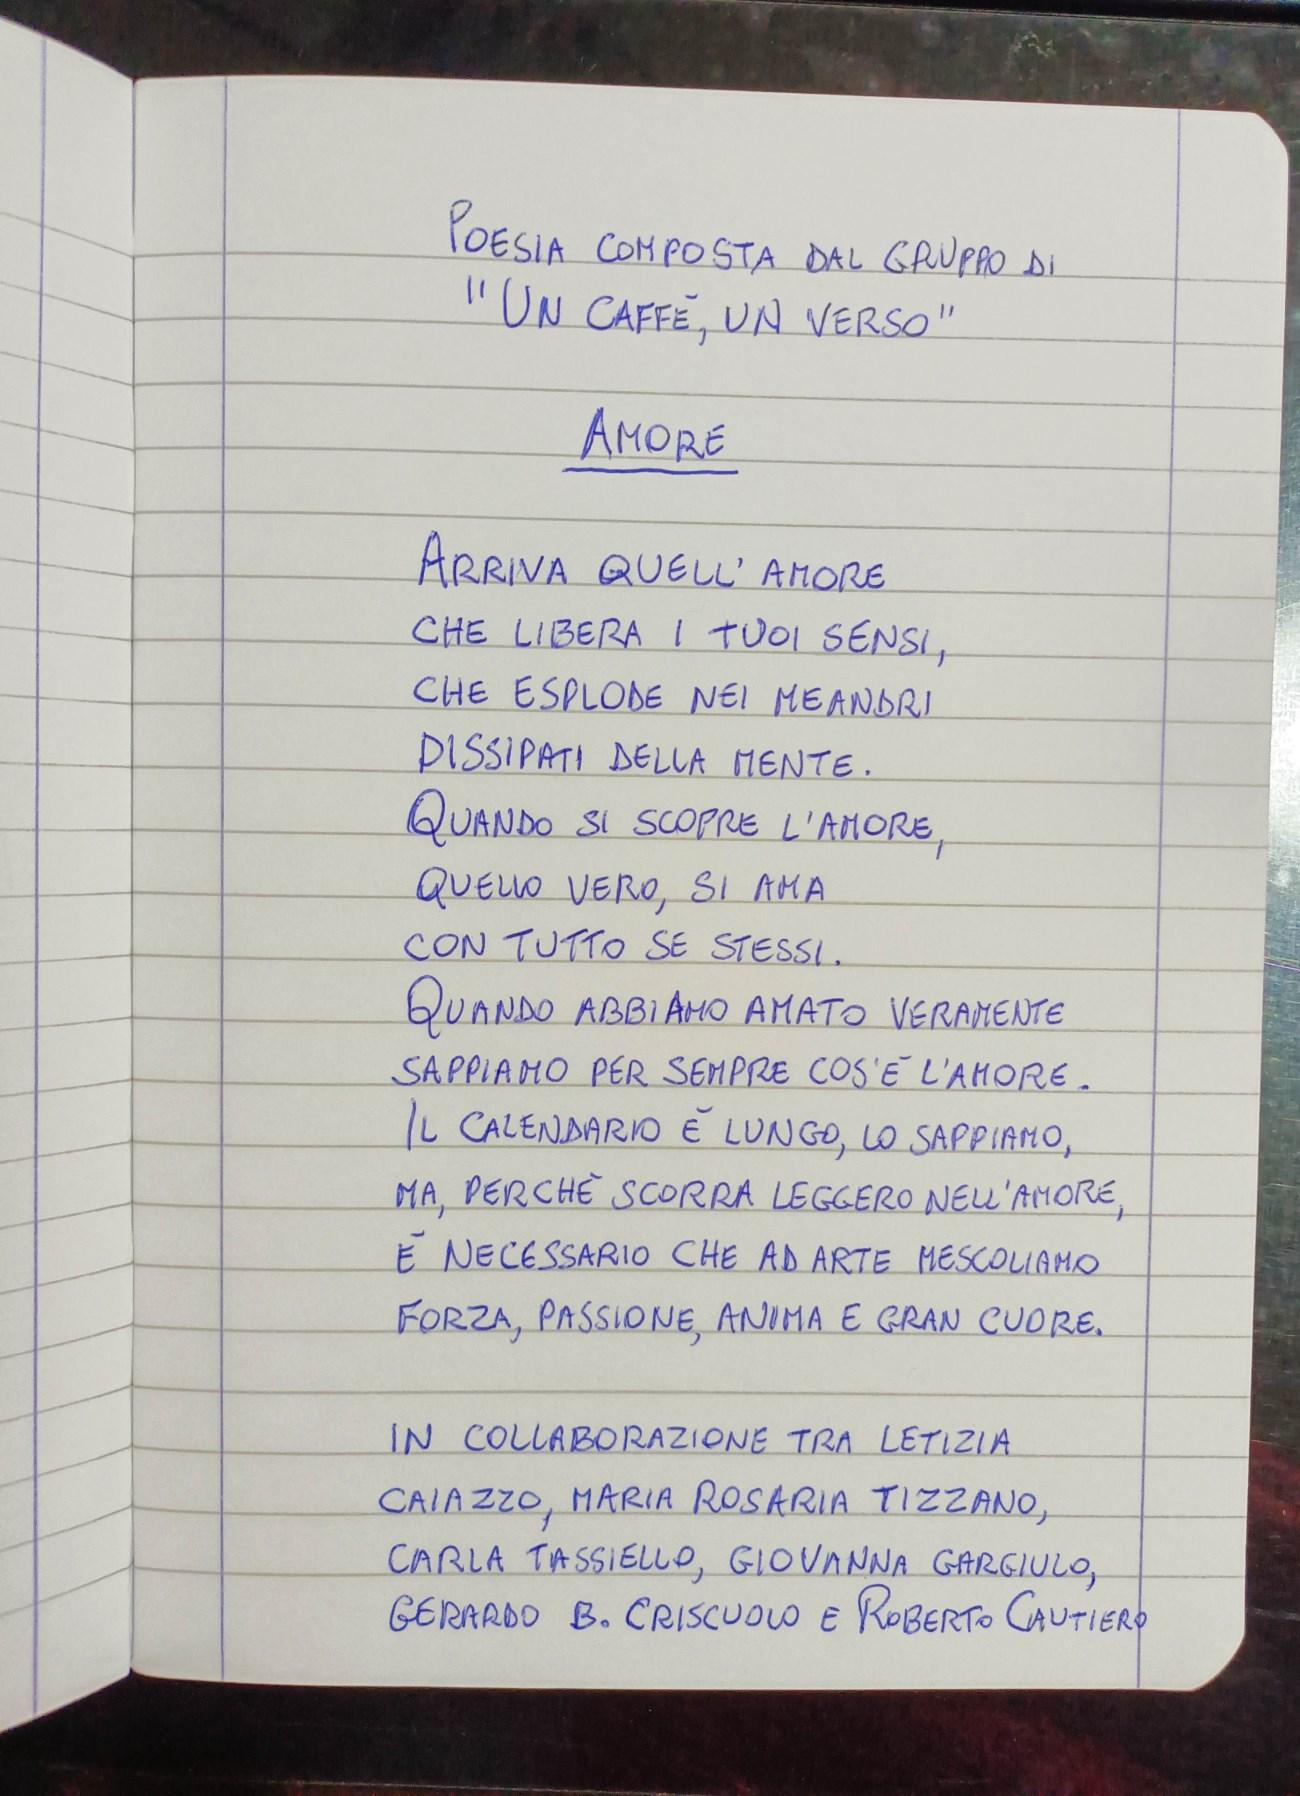 POESIA COMPOSTA DAL GRUPPO DI
"UN CAFFÈ, UN VERSO"
AMORE
ARRIVA QUELL'AMORE
CHE LIBERA I TUOI SENSI,
CHE ESPLODE NEI MEANDRI
DISSIPATI DELLA MENTE.
QUANDO SI SCOPRE L'AMORE,
QUELLO VERO, SI AMA
CON TUTTO SE STESSI.
QUANDO ABBIAMO AMATO VERAMENTE
SAPPIAMO PER SEMPRE COS'È L'AMORE.
IL CALENDARIO È LUNGO, LO SAPPIAMO,
MA, PERCHÈ SCORRA LEGGERO NELL'AMORE,
È NECESSARIO CHE AD ARTE MESCOLIAMO
FORZA, PASSIONE, ANIMA E GRAN CUORE.
IN COLLABORAZIONE TRA LETIZIA
CAIAZZO, MARIA ROSARIA TIZZANO,
CARLA TASSIELLO, GIOVANNA GARGIULO,
GERARDO B. CRISCUOLO E ROBERTO CAUTIERO